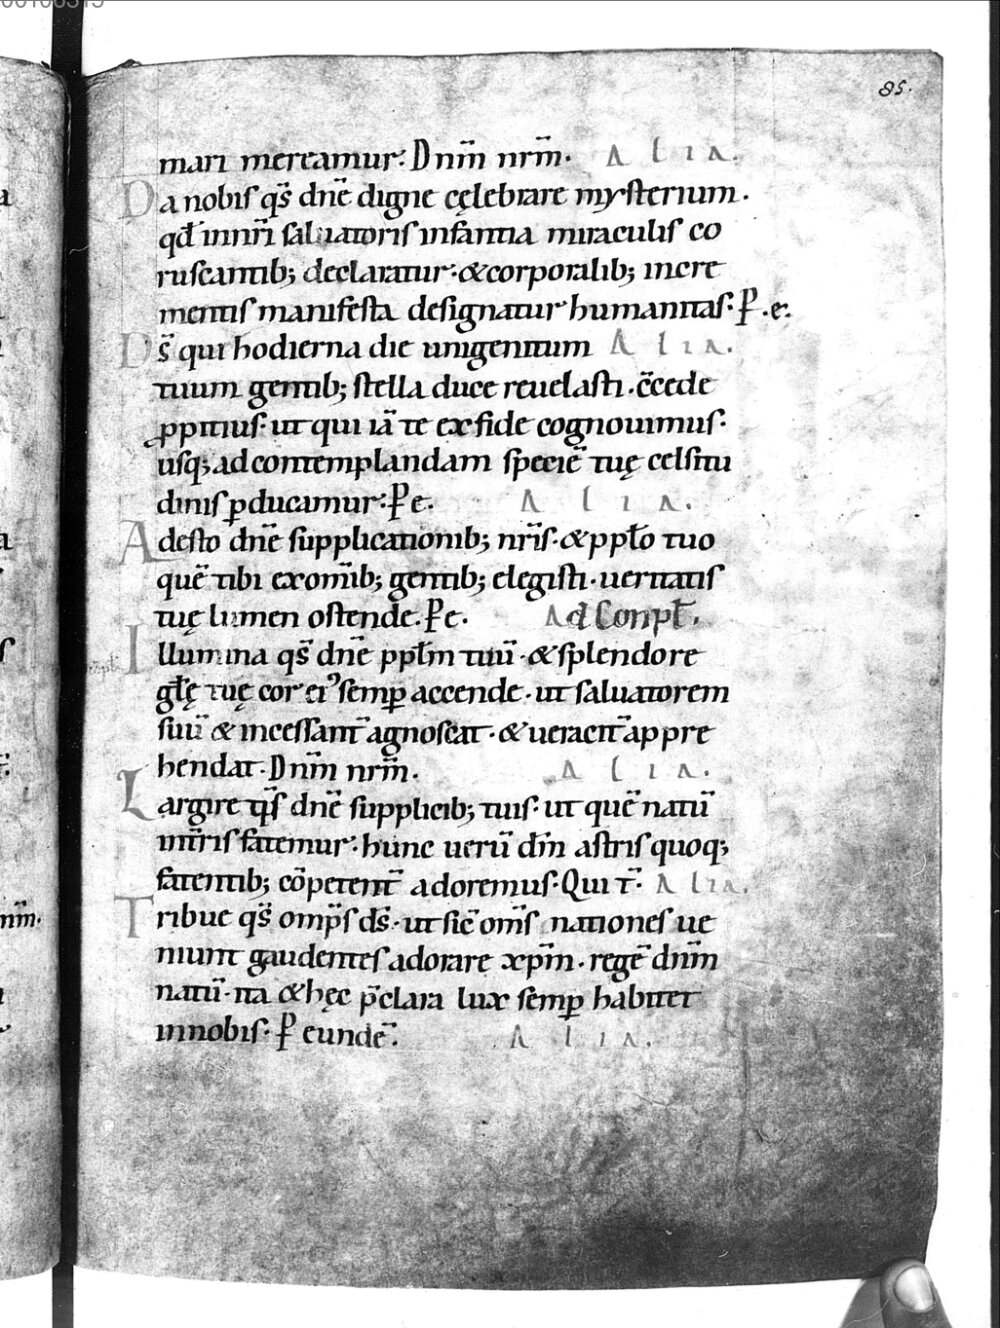 85.
mari mereamur. Dnm̄ nrm̄. ALIA.
Da nobis qs̄ dnē digne cęlebrare mysterium.
qđ innr̄i saluatoris infantia miraculis co
ruscantib; declaratur. &corporalib; incre
mentis manifesta designatur humanitas. P. e.
Ds̄ qui hodierna die unigenitum ALIA.
tuum gentib; stella duce reuelasti. c̄cede
ppitius. ut qui iā te ex fide cognouimus.
usq; ad contemplandam speciē tuę celsitu
dinis pducamur. P e. ALIA.
Adesto dnē supplicationib; nr̄is. &pplo tuo
quē tibi exomīb; gentib; elegisti. ueritatis
tuę lumen ostende. P e. Ad Conpł.
Illumina qs̄ dnē ppłm tuū. &splendore
głę tuę cor ei᾽ semp accende. ut saluatorem
suū & incessant̄ agnoscat. & ueracit̄ appre
hendat. Dnm̄ nrm̄. ALIA.
Largire qs̄ dnē supplicib; tuis. ut quē natū
int̄ris fatemur. hunc uerū dm̄ astris quoq;
fatentib; cōpetent̄ adoremus. Qui t̄. ALIA.
Tribue qs̄ omp̄s ds̄. ut sic̄ oms̄ nationes ue
niunt gaudentes adorare xpm̄. regē dnm̄
natū. ita & hęc p̄clara lux semp habitet
innobis. P eundē. ALIA.